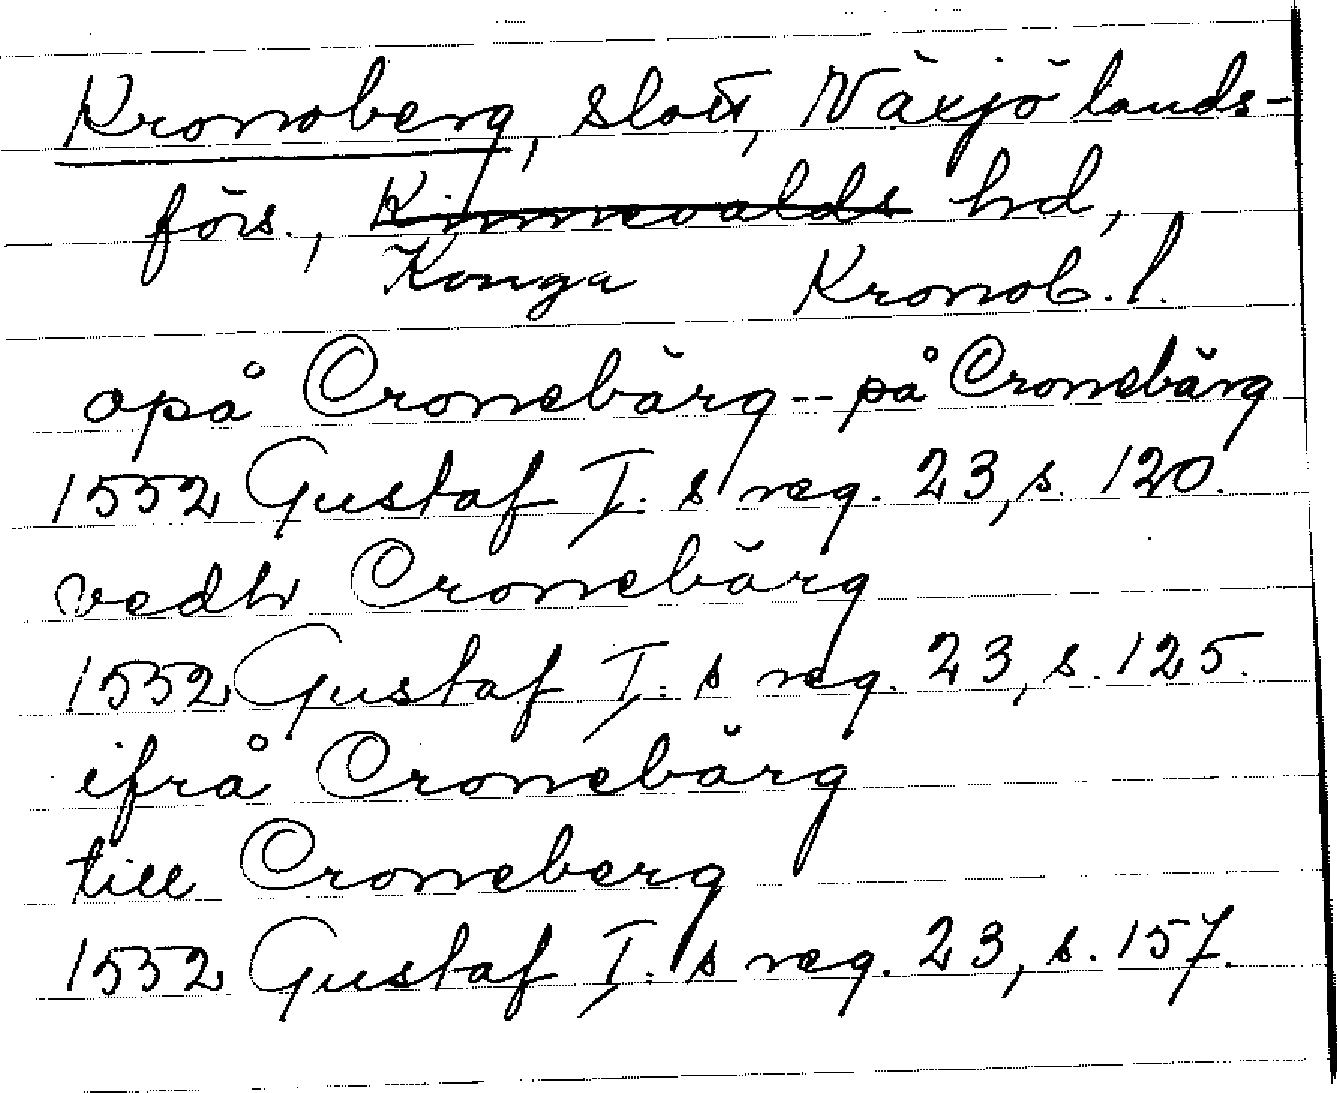 Kronoberg, slott, Växjö lands-
förs., Kinnevalds hd,
Konga Kronob. l.
opå Cronebärg -- på Cronebärg
1552 Gustaf I:s reg. 23, s. 120.
vedh Cronebärg
1552 Gustaf I:s reg. 23, s. 125.
ifrå Cronebärg
till Croneberg
1552 Gustaf I:s reg. 23, s. 157.